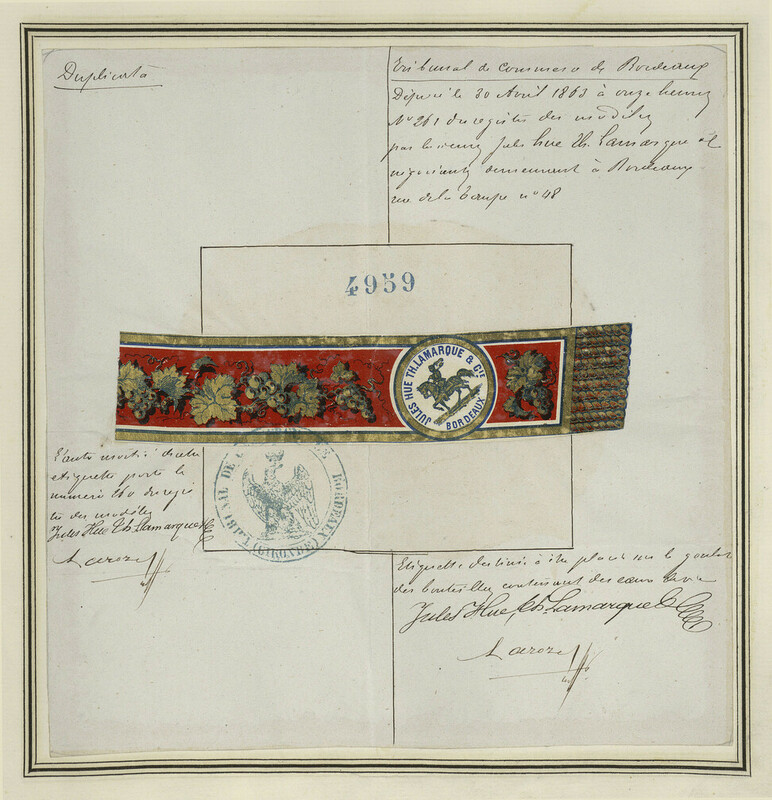 Duplicata
Tribunal de commerce de Bordeaux
Déposé le 30 Avril 1863 à onze heures
No 261 du registre des modèles
par les sieurs Jules Hue Th. Lamarque et
négociants demeurant à Bordeaux
rue de la Taupe no 48
4959
JULES HUE TH. LAMARQUE & CIE
BORDEAUX
L'autre moitié de cette
etiquette porte le
numéro 260 du regis
tre des modèles
Jules Hue Th. Lamarque & C
Laroze
TRIBUNAL DE COMMERCE BORDEAUX
(GIRONDE)
Etiquette destinée à être placée sur le goulot
des bouteilles contenant des eaux de vie
Jules Hue, Th. Lamarque &
Laroze